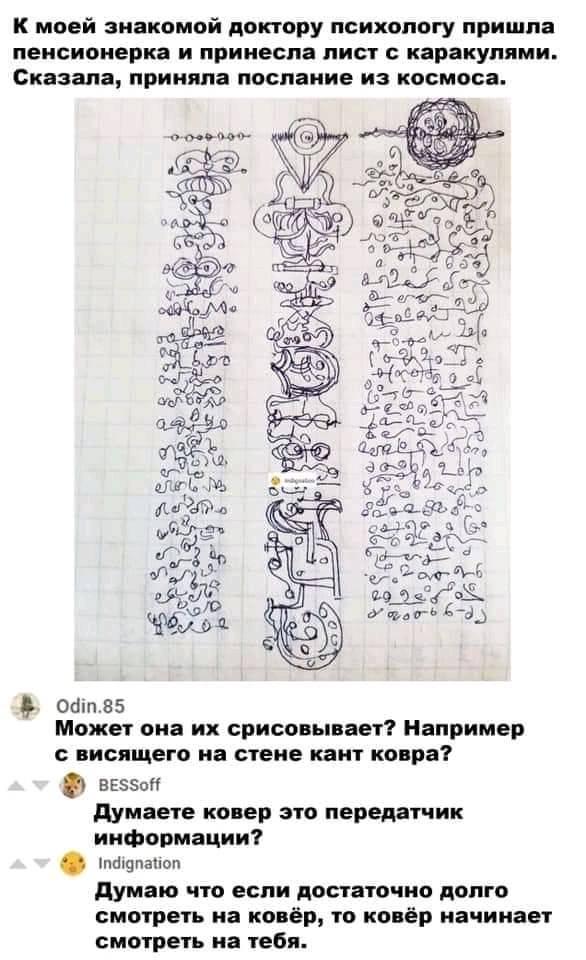 К моей знакомой доктору психологу пришла
пенсионерка и принесла лист с каракулями.
Сказала, приняла послание из космоса.
Indignation
Odin.85
Может она их срисовывает? Например
с висящего на стене кант ковра?
BESSoff
Думаете ковер это передатчик
информации?
Indignation
Думаю что если достаточно долго
смотреть на ковёр, то ковёр начинает
смотреть на тебя.